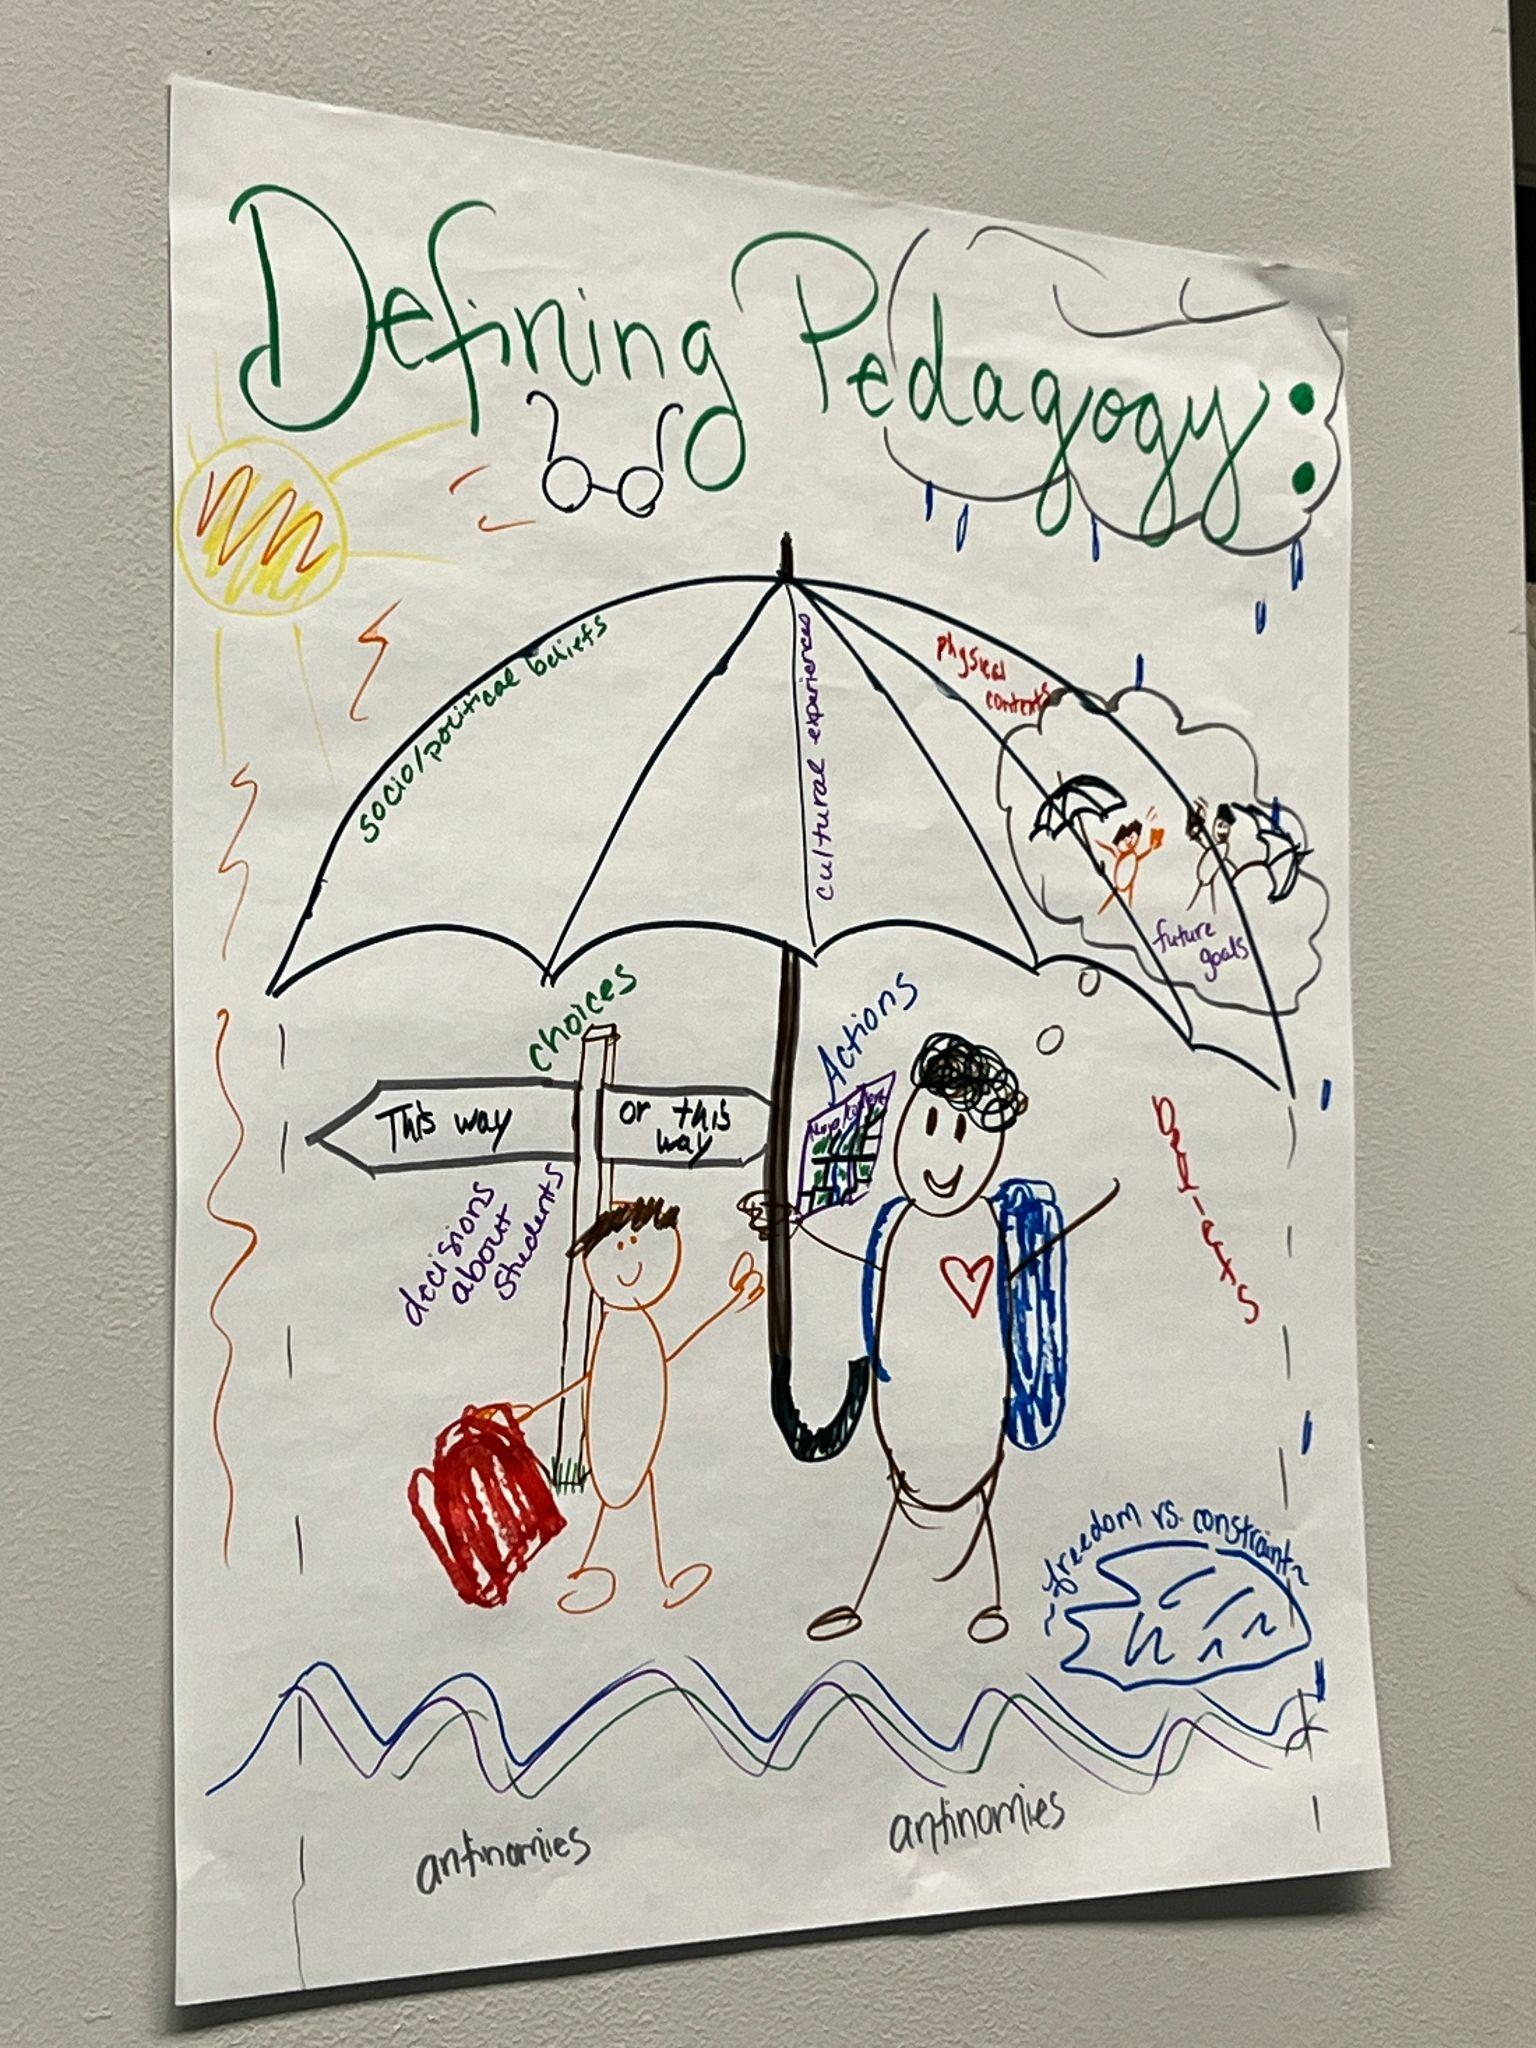 Defining Pedagogy:
socio/political beliefs
cultural experiences
physical
contexts
future
goals
choices
Actions
This way
or this
way
decisions
about
students
freedom vs. constraint
antinomies
antinomies